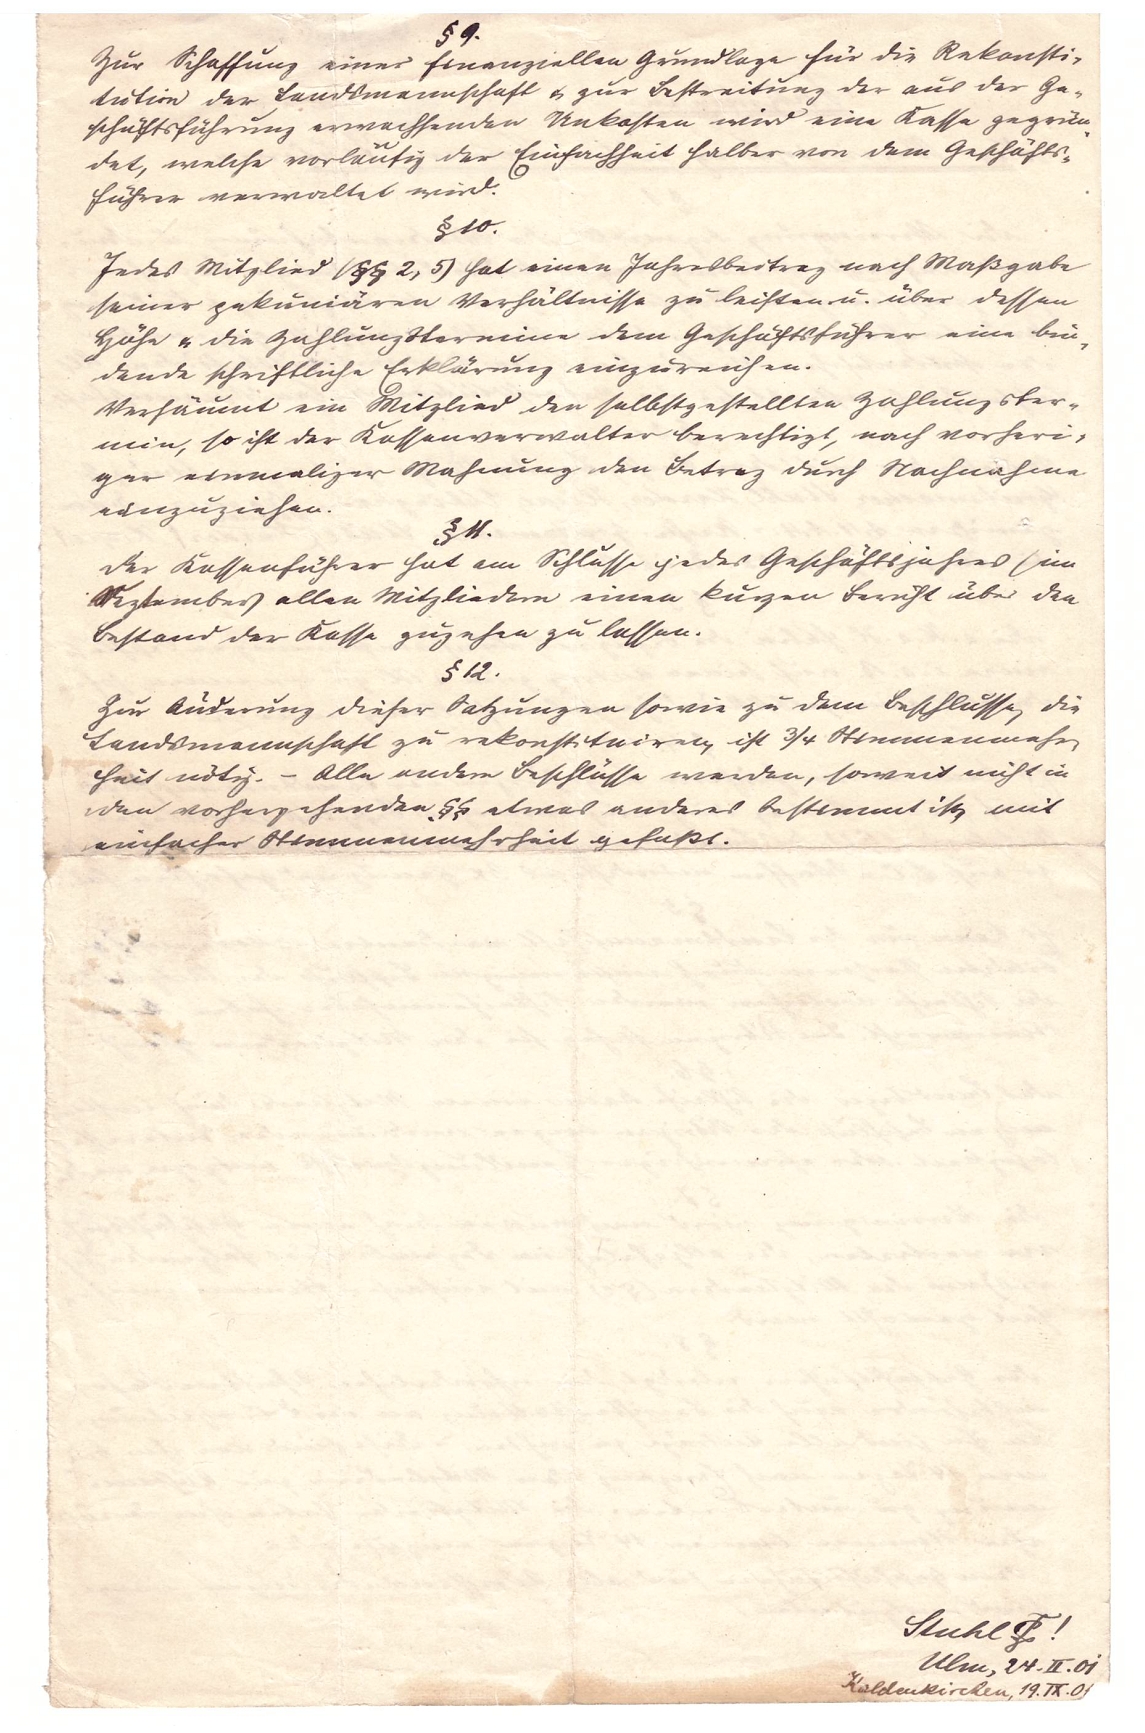 § 9.
Zur Schaffung einer finanziellen Grundlage für die Rekonsti-
tution der Landsmannschaft u. zur Bestreitung der aus der Ge-
schäftsführung erwachsenden Unkosten wird eine Kasse gegrün-
det, welche vorläufig der Einfachheit halber von dem Geschäfts-
führer verwaltet wird.
§ 10.
Jedes Mitglied (§§ 2, 5) hat einen Jahresbeitrag nach Maßgabe
seiner pekuniären Verhältnisse zu leisten u. über dessen
Höhe u. die Zahlungstermine dem Geschäftsführer eine bin-
dende schriftliche Erklärung einzureichen.
Versäumt ein Mitglied den selbstgestellten Zahlungster-
min, so ist der Kassenverwalter berechtigt, nach vorheri-
ger einmaliger Mahnung den Betrag durch Nachnahme
einzuziehen.
§ 11.
Der Kassenführer hat am Schlusse jedes Geschäftsjahres (im
September) allen Mitgliedern einen kurzen Bericht über den
Bestand der Kasse zugehen zu lassen.
§ 12.
Zur Änderung dieser Satzungen sowie zu dem Beschlusse, die
Landsmannschaft zu rekonstituiren, ist 3/4 Stimmenmehr-
heit nötig. – Alle andern Beschlüsse werden, soweit nicht in
den vorhergehenden §§ etwas anderes bestimmt ist, mit
einfacher Stimmenmehrheit gefaßt.
Stuhl !
Ulm, 24.II.01
Kaldenkirchen, 19.IX.01